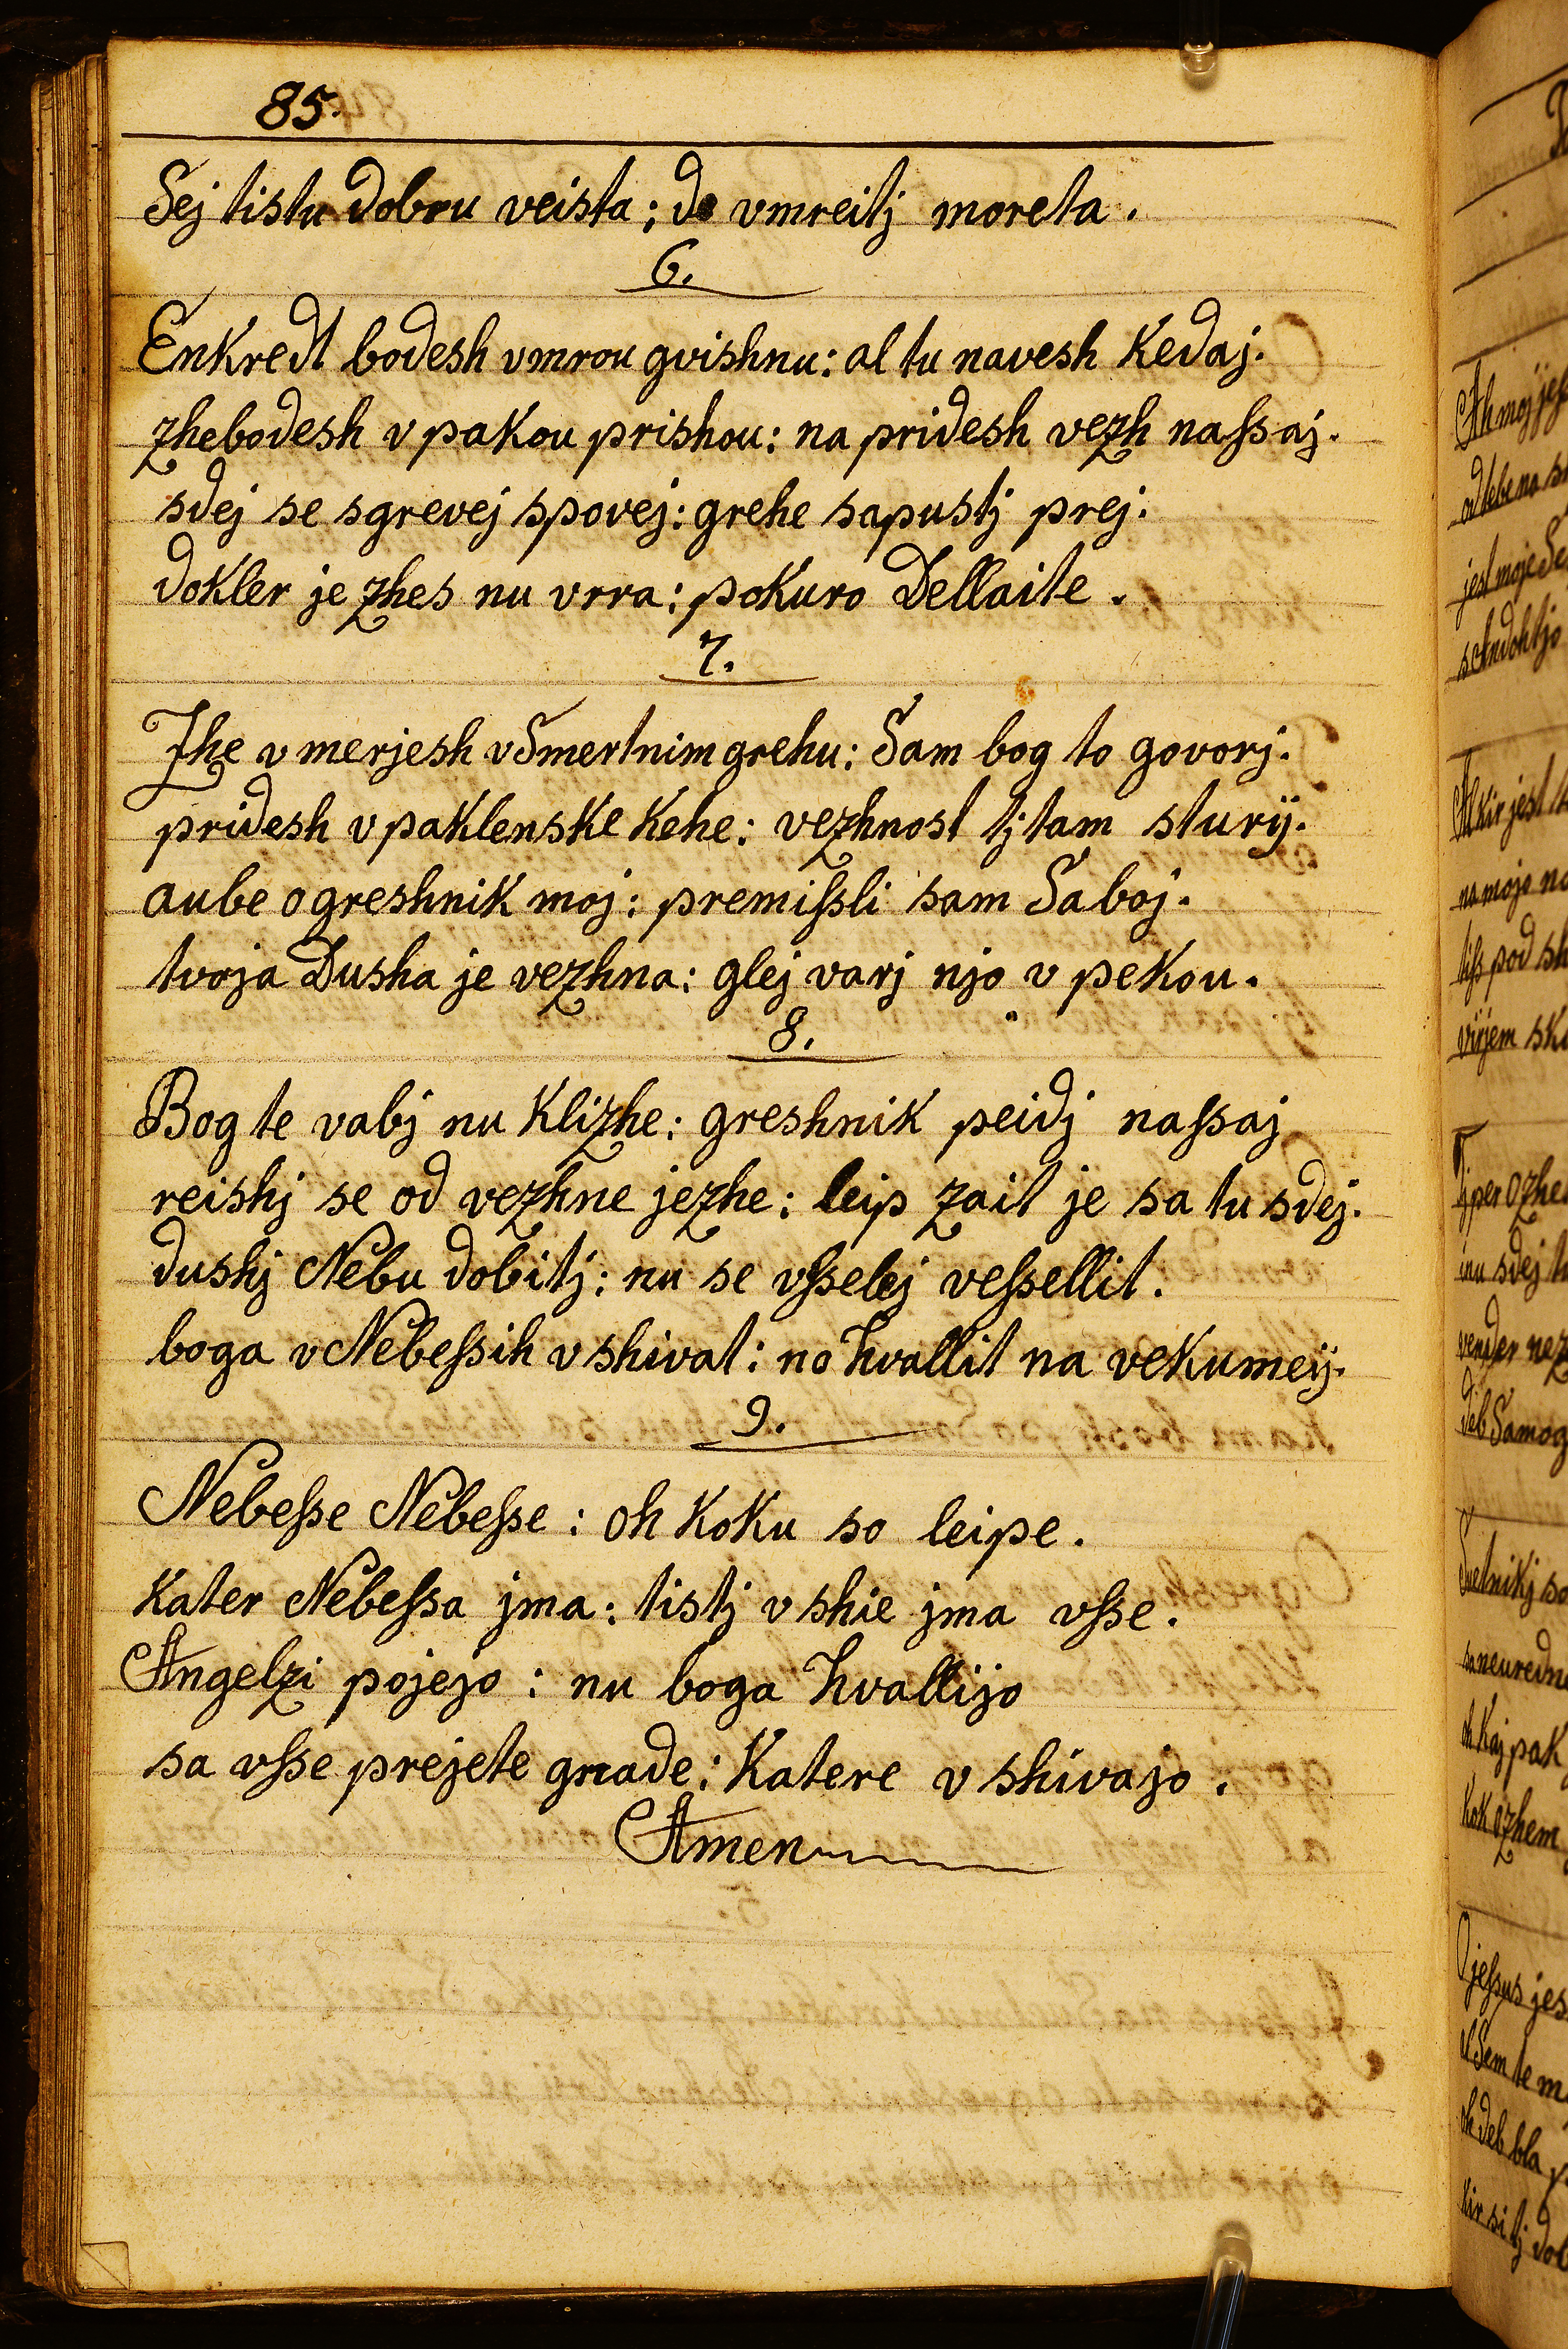 85.
Sej tistu dobru veista: de vmreitj moreta.
6.
Enkredt bodesh vmrou gvishnu: al tu navesh kedaj.
zhebodesh v pakou prishou: na pridesh vezh naſsaj.
sdej se sgrevej spovej: grehe sapustj prej.
dokler je zhes nu vrra: pokuro Dellaite.
7.
Zhe v merjesh v Smertnim grehu: Sam bog to govorj.
pridesh v paklenske kehe: vezhnost tj tam sturij.
aube o greshnik moj: premiſsli sam Saboj.
tvoja Dusha je vezhna: glej varj njo v pekou.
8.
Bog te vabj nu klizhe: greshnik peidj naſsaj
reishj se od vezhne jezhe: leip zait je sa tu sdej.
dushj Nebu dobitj: nu se vſselej veſsellit.
boga v Nebeſsih vshivat: no hvallit na vekumeij.
9.
Nebeſse Nebeſse: oh koku so leipe.
kater Nebeſsa jma: tistj vshie jma vſse.
Angelzi pojejo: nu boga hvallijo
sa vſse prejete gnade: katere vshivajo.
Amen